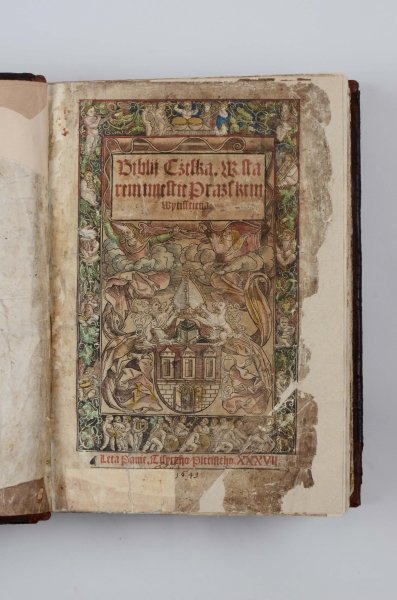 Biblij Cżeska. W sta
rem miestie Prażskem
wytisstiena.
Leta Panie. Tisyczho Pietisteho. XXXVII.
1543